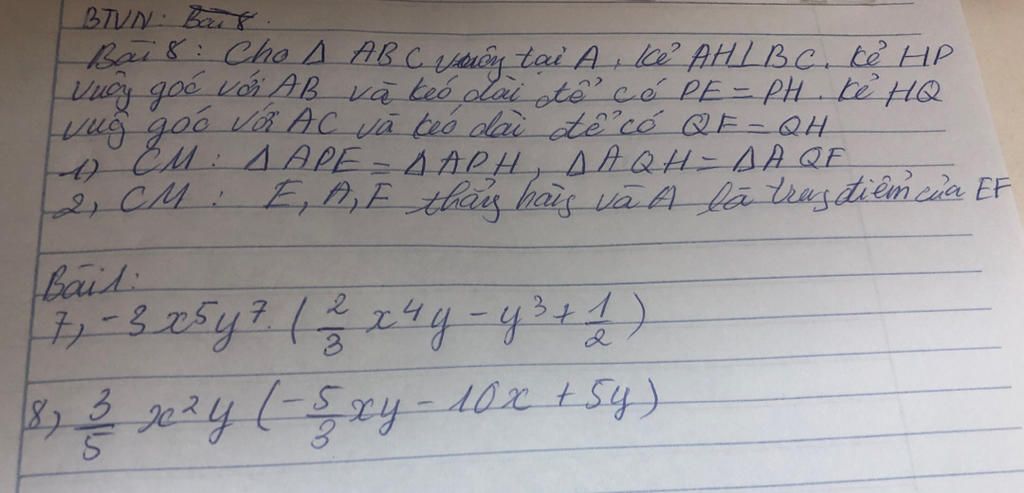 BTVN: Bài 8.
Bài 8: Cho Δ ABC vuông tại A, kẻ AH⊥BC. kẻ HP
vuông góc với AB và kéo dài để có PE = PH. kẻ HQ
vuông góc với AC và kéo dài để có QF = QH
1) CM: Δ APE = Δ APH, Δ AQH = Δ AQF
2, CM: E, A, F thẳng hàng và A là trung điểm của EF
Bài 1:
7, -3x⁵y⁷. (2/3 x⁴y - y³ + 1/2)
8, 3/5 x²y (-5/3 xy - 10x + 5y)